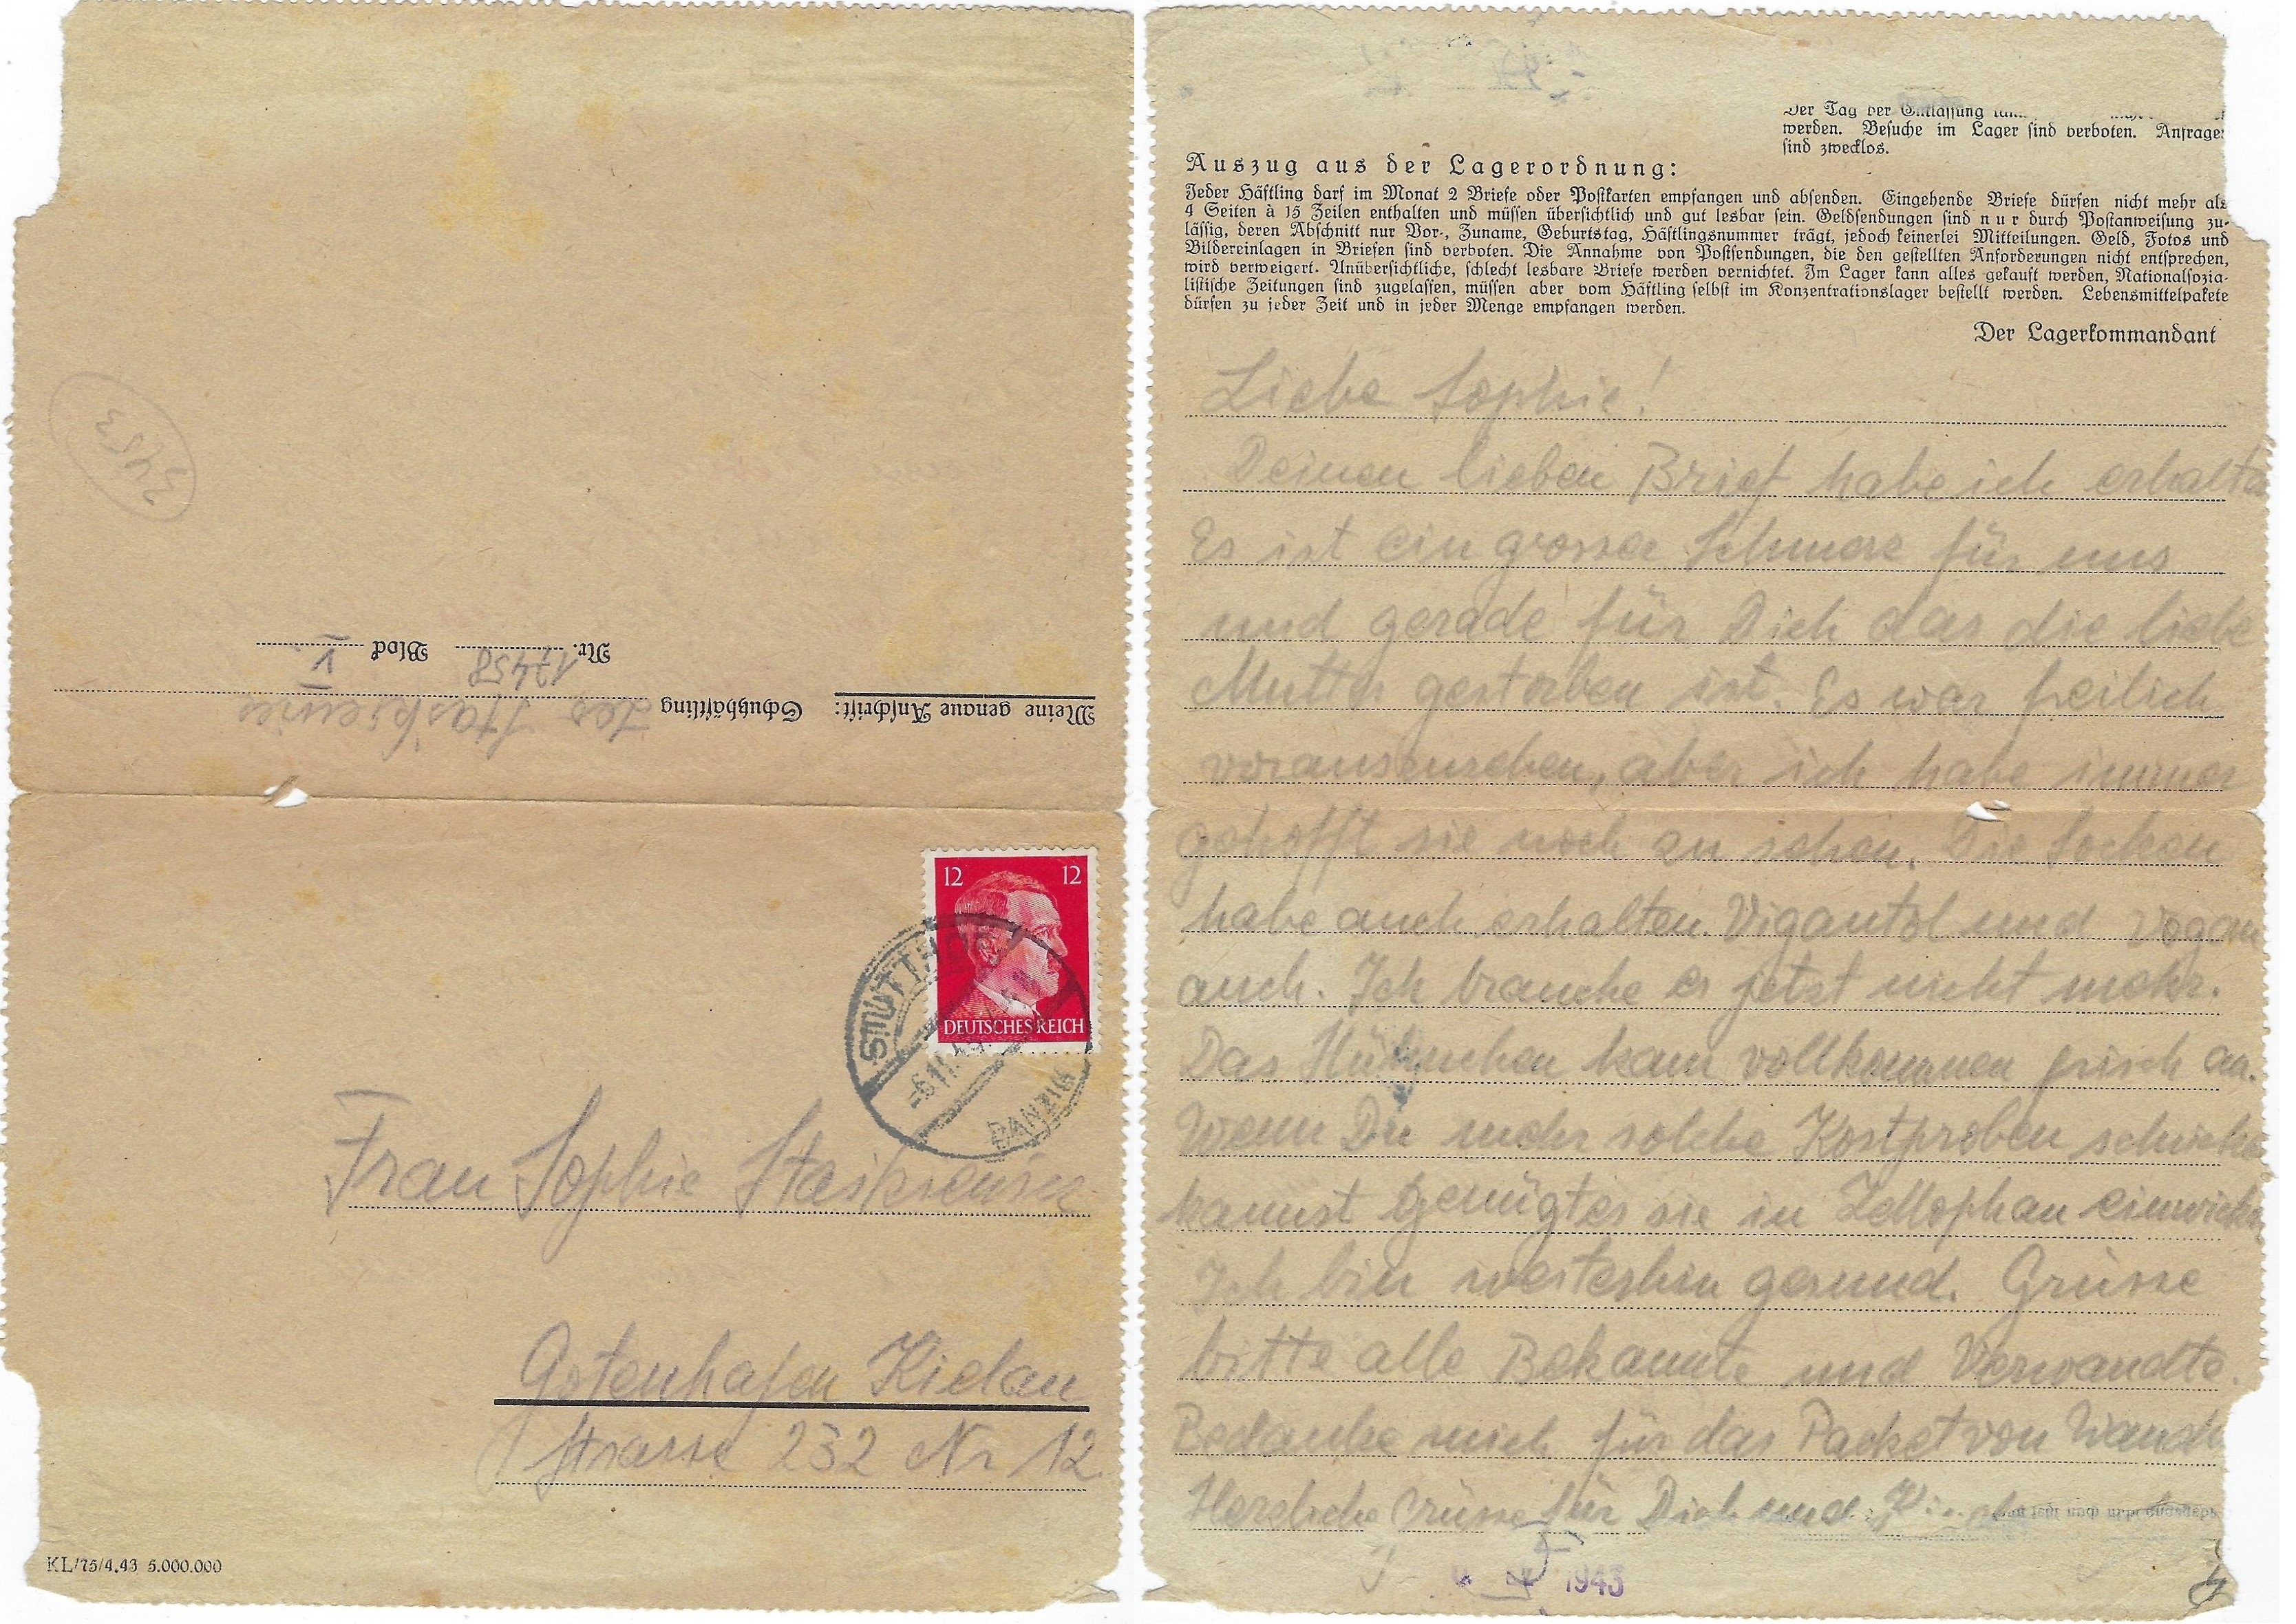 3453
Meine genaue Anschrift:
Schutzhäftling
des
Nr. 17458 Block V.
12 12
DEUTSCHES REICH
STUTTHOF
-6.11.43
DANZIG
Frau Sophie
Gotenhafen Kielau
Strasse 232 Nr 12.
KL/75/4.43 5.000.000
Der Tag der Entlassung
werden. Besuche im Lager sind verboten. Anfragen
sind zwecklos.
Auszug aus der Lagerordnung:
Jeder Häftling darf im Monat 2 Briefe oder Postkarten empfangen und absenden. Eingehende Briefe dürfen nicht mehr als
4 Seiten à 15 Zeilen enthalten und müssen übersichtlich und gut lesbar sein. Geldsendungen sind nur durch Postanweisung zu-
lässig, deren Abschnitt nur Vor-, Zuname, Geburtstag, Häftlingsnummer trägt, jedoch keinerlei Mitteilungen. Geld, Fotos und
Bildereinlagen in Briefen sind verboten. Die Annahme von Postsendungen, die den gestellten Anforderungen nicht entsprechen,
wird verweigert. Unübersichtliche, schlecht lesbare Briefe werden vernichtet. Im Lager kann alles gekauft werden, Nationalsozia-
listische Zeitungen sind zugelassen, müssen aber vom Häftling selbst im Konzentrationslager bestellt werden. Lebensmittelpakete
dürfen zu jeder Zeit und in jeder Menge empfangen werden.
Der Lagerkommandant
Liebe Sophie!
Deinen lieben Brief habe ich erhalten
Es ist ein grosser Schmerz für uns
und gerade für Dich das die liebe
Mutter gestorben ist. Es war freilich
vorauszusehen, aber ich habe immer
gehofft sie noch zu sehen. Die Socken
habe auch erhalten. Vigantol und Vogan
auch. Ich brauche es jetzt nicht mehr.
Das Hühnchen kam vollkommen frisch an.
Wenn Du mehr solche Kostproben schicken
kannst genügt es sie in Zellophan einwickeln
Ich bin weiterhin gesund. Grüsse
bitte alle Bekannte und Verwandte.
Bedanke mich für das Packet von
Herzliche Grüsse für Dich und
1943